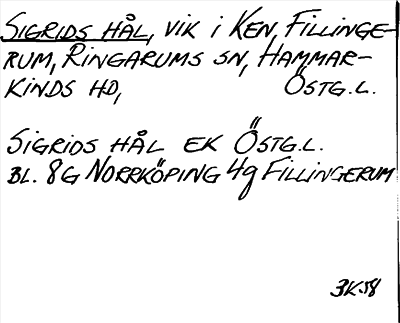 SIGRIDS HÅL, VIK I KEN, FILLINGE-
RUM, RINGARUMS SN, HAMMAR-
KINDS HD, ÖSTG.L.
SIGRIDS HÅL EK ÖSTG.L.
BL. 8G NORRKÖPING 4g FILLINGERUM
3K58